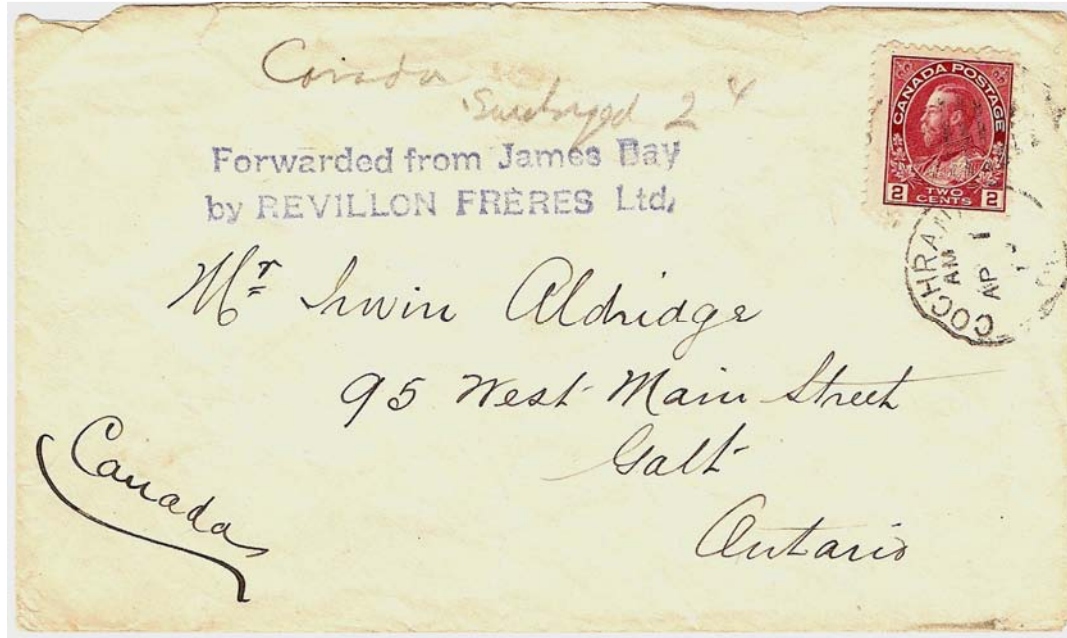 Canada
Surcharged 2
Forwarded from James Bay
by REVILLON FRÈRES Ltd,
CANADA POSTAGE
2 TWO CENTS 2
COCHRANE
AM
AP 1
Mr Irwin Aldridge
95 West Main Street
Galt
Ontario
Canada